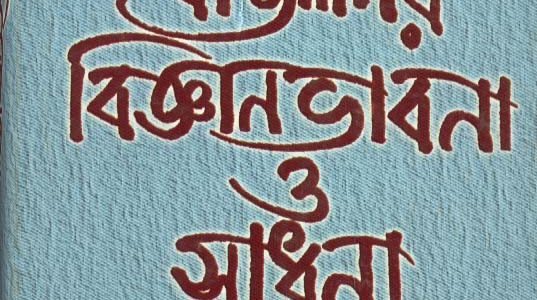 বিজ্ঞানভাবনা
ও
সাধনা